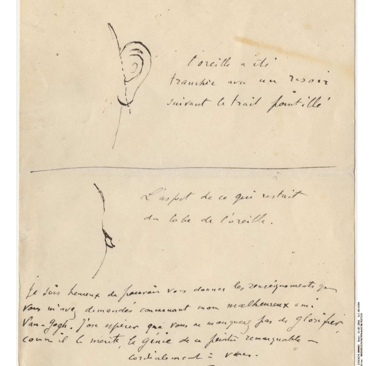 L'oreille a été
tranchée avec un rasoir
suivant le trait pointillé
L'aspect de ce qui restait
du lobe de l'oreille.
Je suis heureux de pouvoir vous donner les renseignements que
vous m'avez demandés concernant mon malheureux ami
Van-Gogh. J'ose espérer que vous ne manquerez pas de glorifier
comme il le mérite, le génie de ce peintre remarquable –
Cordialement à vous.